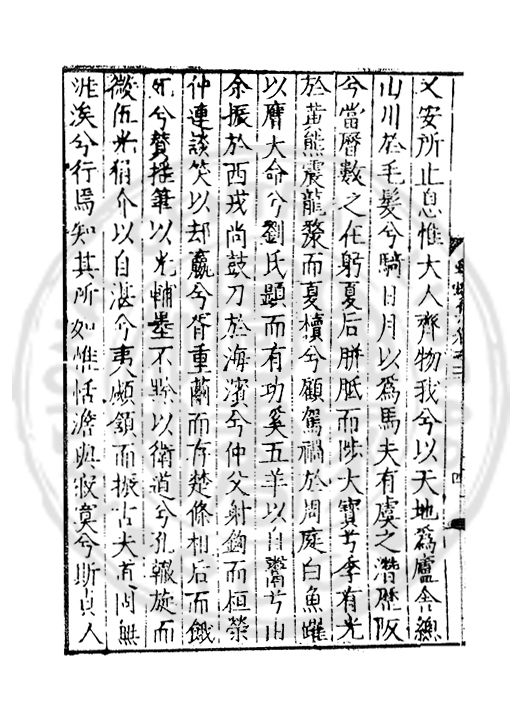 又安所止息惟大人齊物我兮以天地爲廬舍總
山川於毛髮兮騎日月以爲馬夫有虞之潛歷阪
兮當曆數之在躬夏后胼胝而陟大寶兮李有光
於黃熊震龍漦而夏櫝兮顧駕禍於周庭白魚躍
以膺大命兮劉氏顕而有功奚五羊以自鬻兮由
余振於西戎尚鼓刀於海濱兮仲父射鉤而桓榮
仲連談笑以却嬴兮胥重繭而存楚條相后而餓
死兮贊搖筆以光輔墨不黔以衛道兮孔轍旋而
微伍光狷介以自湛兮夷顑頷而振古夫首同無
涯涘兮行焉知其所如惟恬澹與寂寞兮斯真人